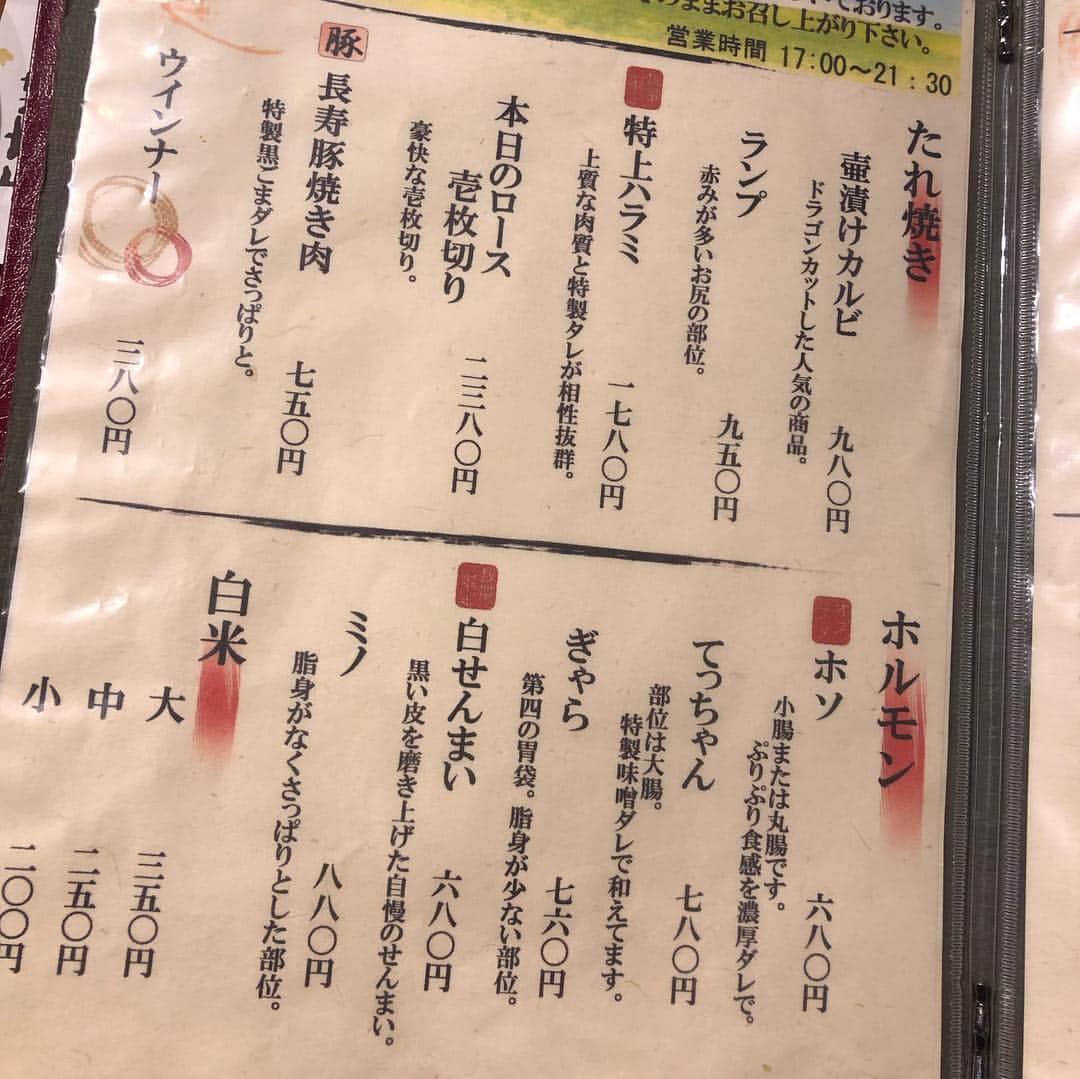 おります。
ままお召し上がり下さい。
営業時間 17:00〜21:30
たれ焼き
壺漬けカルビ
ドラゴンカットした人気の商品。
九八〇円
ランプ
赤みが多いお尻の部位。
九五〇円
特上ハラミ
上質な肉質と特製タレが相性抜群。
一七八〇円
本日のロース
壱枚切り
豪快な壱枚切り。
二三八〇円
豚
長寿豚焼き肉
特製黒ごまダレでさっぱりと。
七五〇円
ウインナー
三八〇円
ホルモン
ホソ
小腸または丸腸です。
ぷりぷり食感を濃厚ダレで。
六八〇円
てっちゃん
部位は大腸。
特製味噌ダレで和えてます。
七八〇円
ぎゃら
第四の胃袋。脂身が少ない部位。
七六〇円
白せんまい
黒い皮を磨き上げた自慢のせんまい。
六八〇円
ミノ
脂身がなくさっぱりとした部位。
八八〇円
白米
大
三五〇円
中
二五〇円
小
二〇〇円